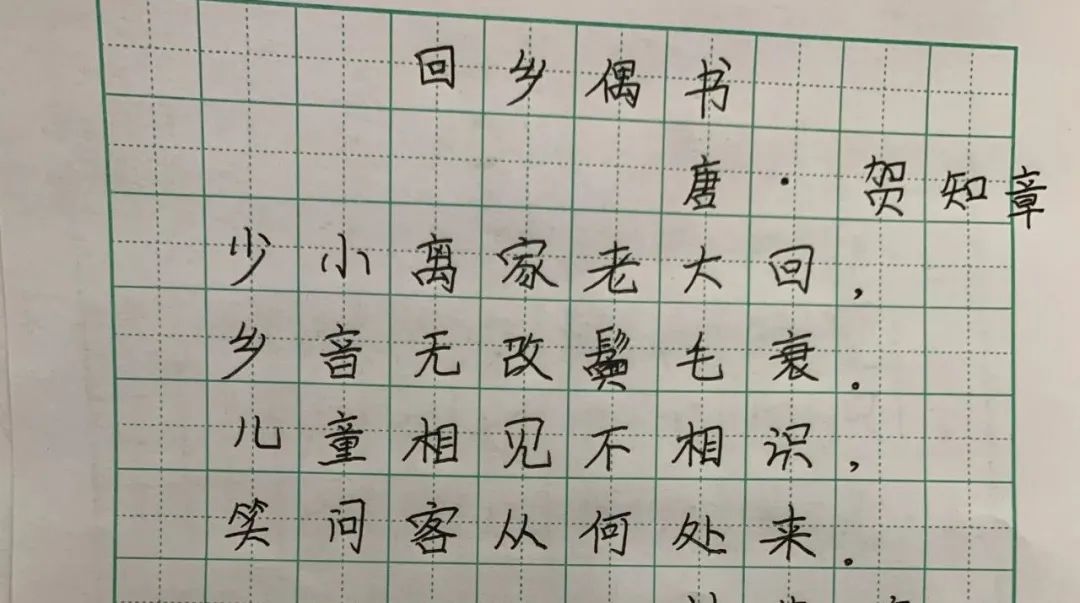 回乡偶书
唐·贺知章
少小离家老大回，
乡音无改鬓毛衰。
儿童相见不相识，
笑问客从何处来。